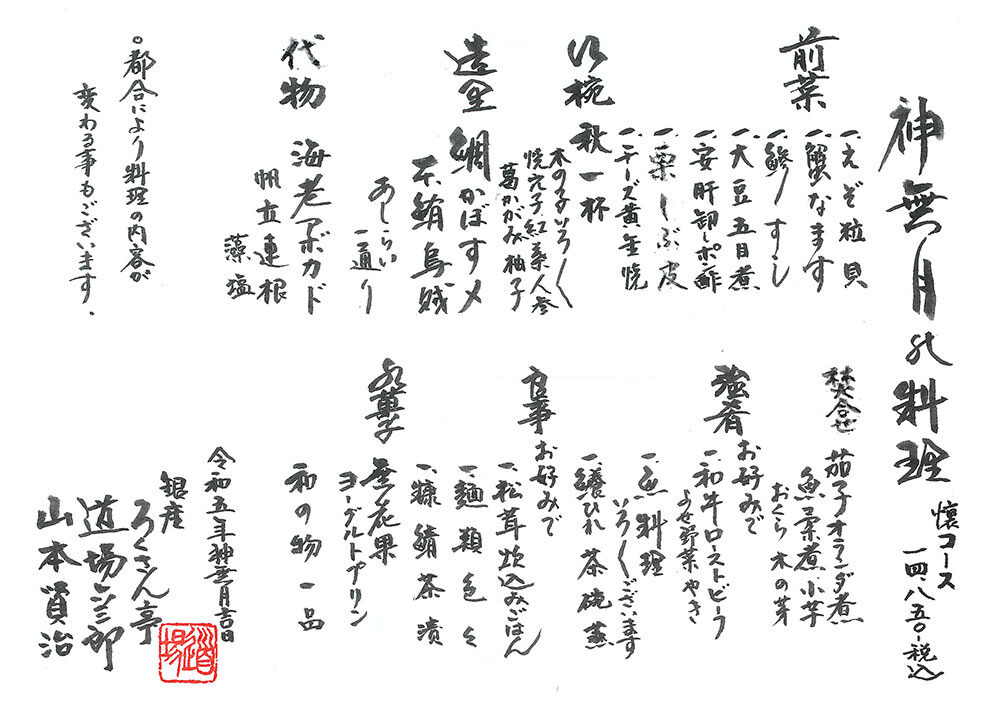 神無月の料理
懐コース
一四、八五〇-税込
前菜
一、えぞ粒貝
一、蟹なます
一、鯵すし
一、大豆五目煮
一、安肝卸しポン酢
一、栗しぶ皮
一、チーズ黄金焼
御椀 秋一杯
木の子いろ〱
焼穴子紅葉人参
葛かがみ柚子
造里 鯛かぼす〆
本鮪烏賊
あしらい
一通り
代物 海老アボカド
帆立連根
藻塩
。都合により料理の内容が
変わる事もございます。
焚合せ 茄子オランダ煮
魚菜煮小芋
おくら 木の芽
強肴 お好みで
一、和牛ローストビーフ
よせ野菜やき
一、魚料理
いろ〱ございます
一、鱶ひれ茶碗蒸
食事 お好みで
一、松茸炊込みごはん
一、麺類色々
一、糠鯖茶漬
水菓子 無花果
ヨーグルトプリン
和の物一品
令和五年神無月吉日
銀座
ろくさん亭
道場六三郎
山本賢治
道場